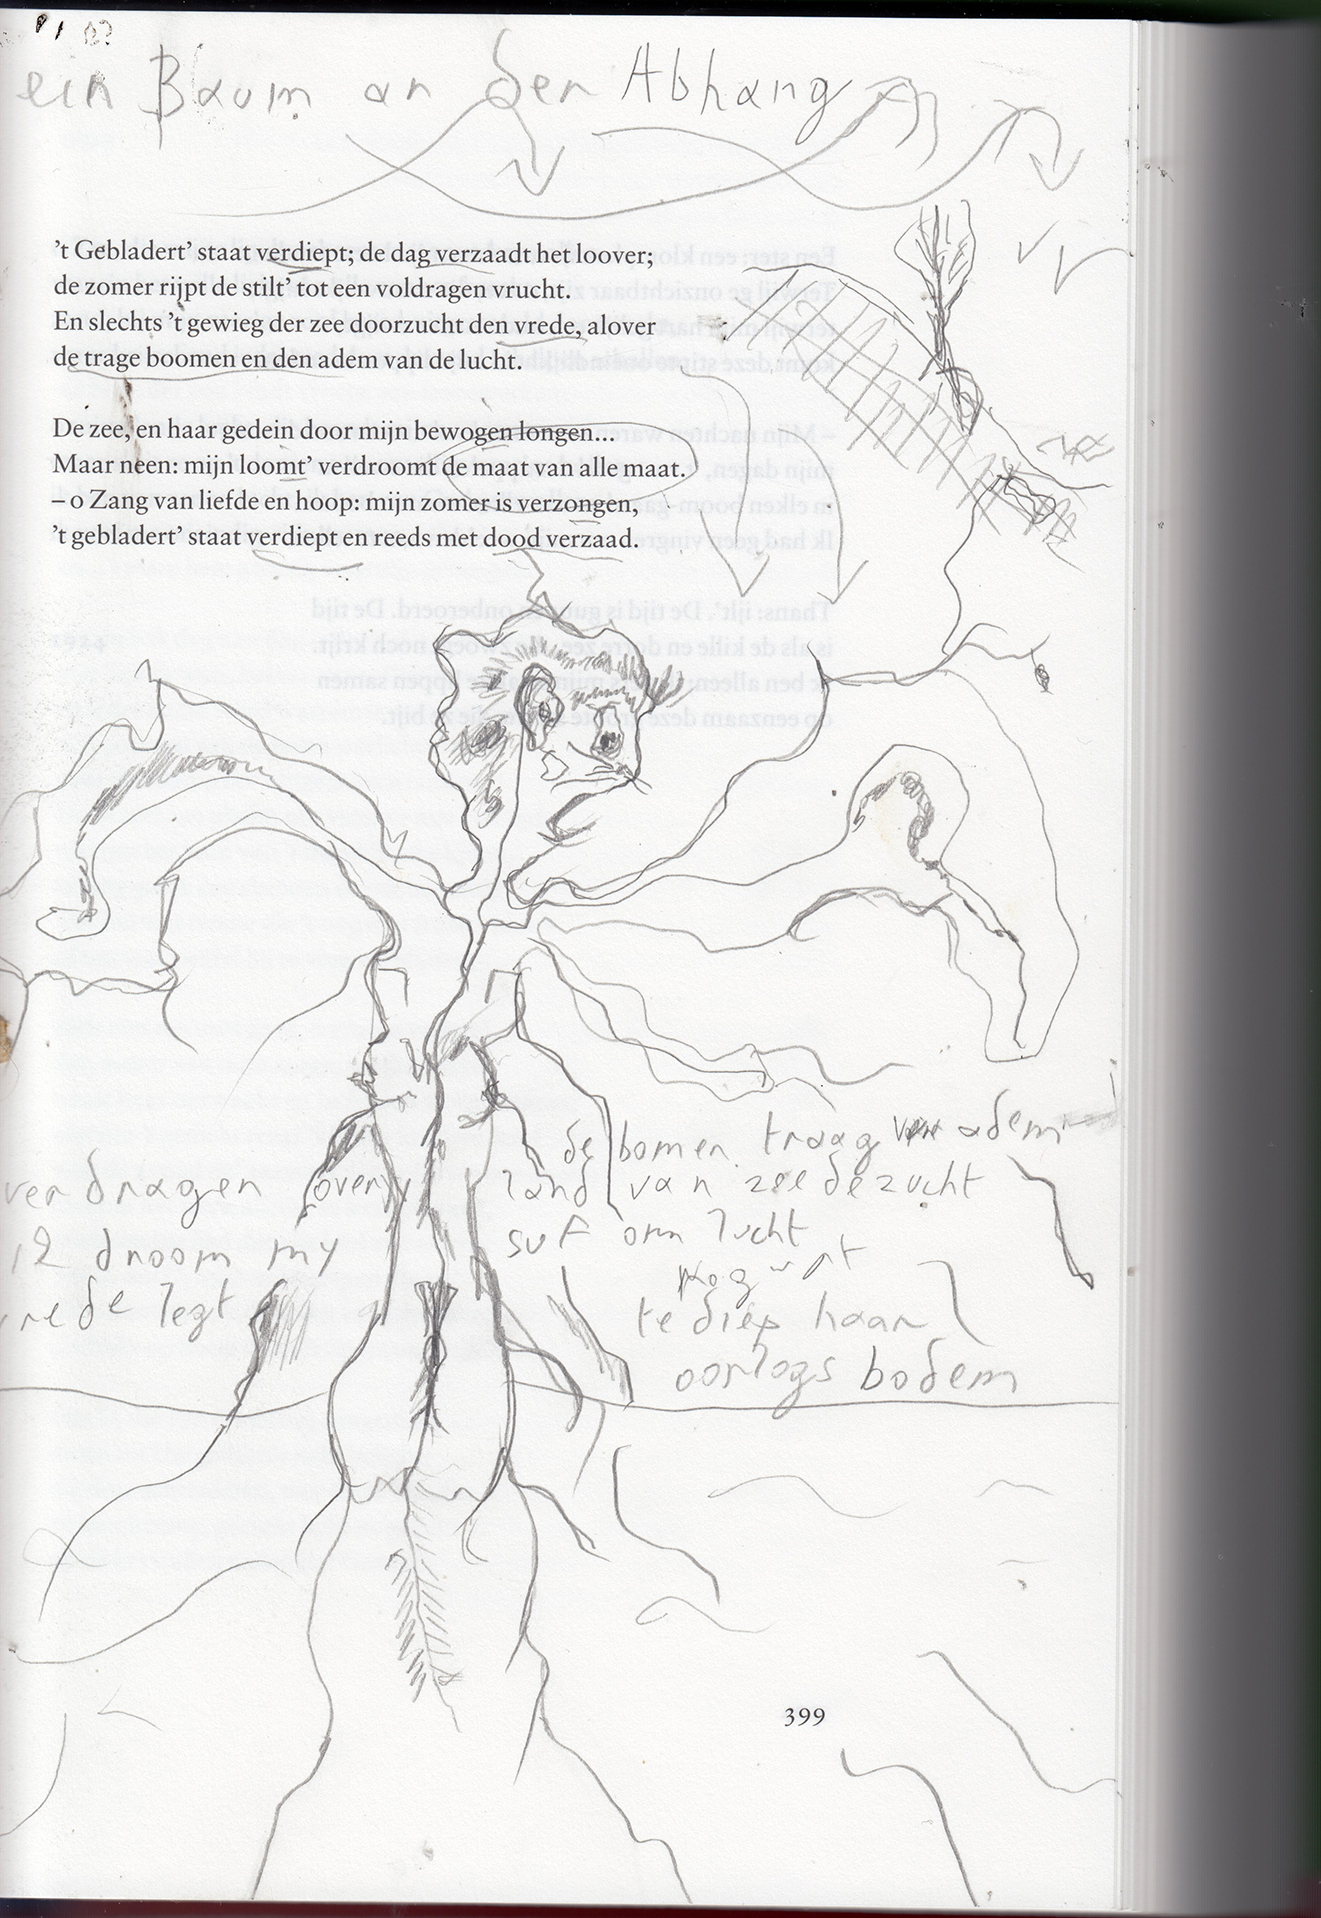 ein Baum an der Abhang
't Gebladert' staat verdiept; de dag verzaadt het loover;
de zomer rijpt de stilt' tot een voldragen vrucht.
En slechts 't gewieg der zee doorzucht den vrede, alover
de trage boomen en den adem van de lucht.
De zee, en haar gedein door mijn bewogen longen...
Maar neen: mijn loomt' verdroomt de maat van alle maat.
– o Zang van liefde en hoop: mijn zomer is verzongen,
't gebladert' staat verdiept en reeds met dood verzaad.
de bomen traag adem
land van zeedezucht
suf om lucht
te diep haar
oorlogs bodem
verdragen over
ik droom my
vrede legt
399